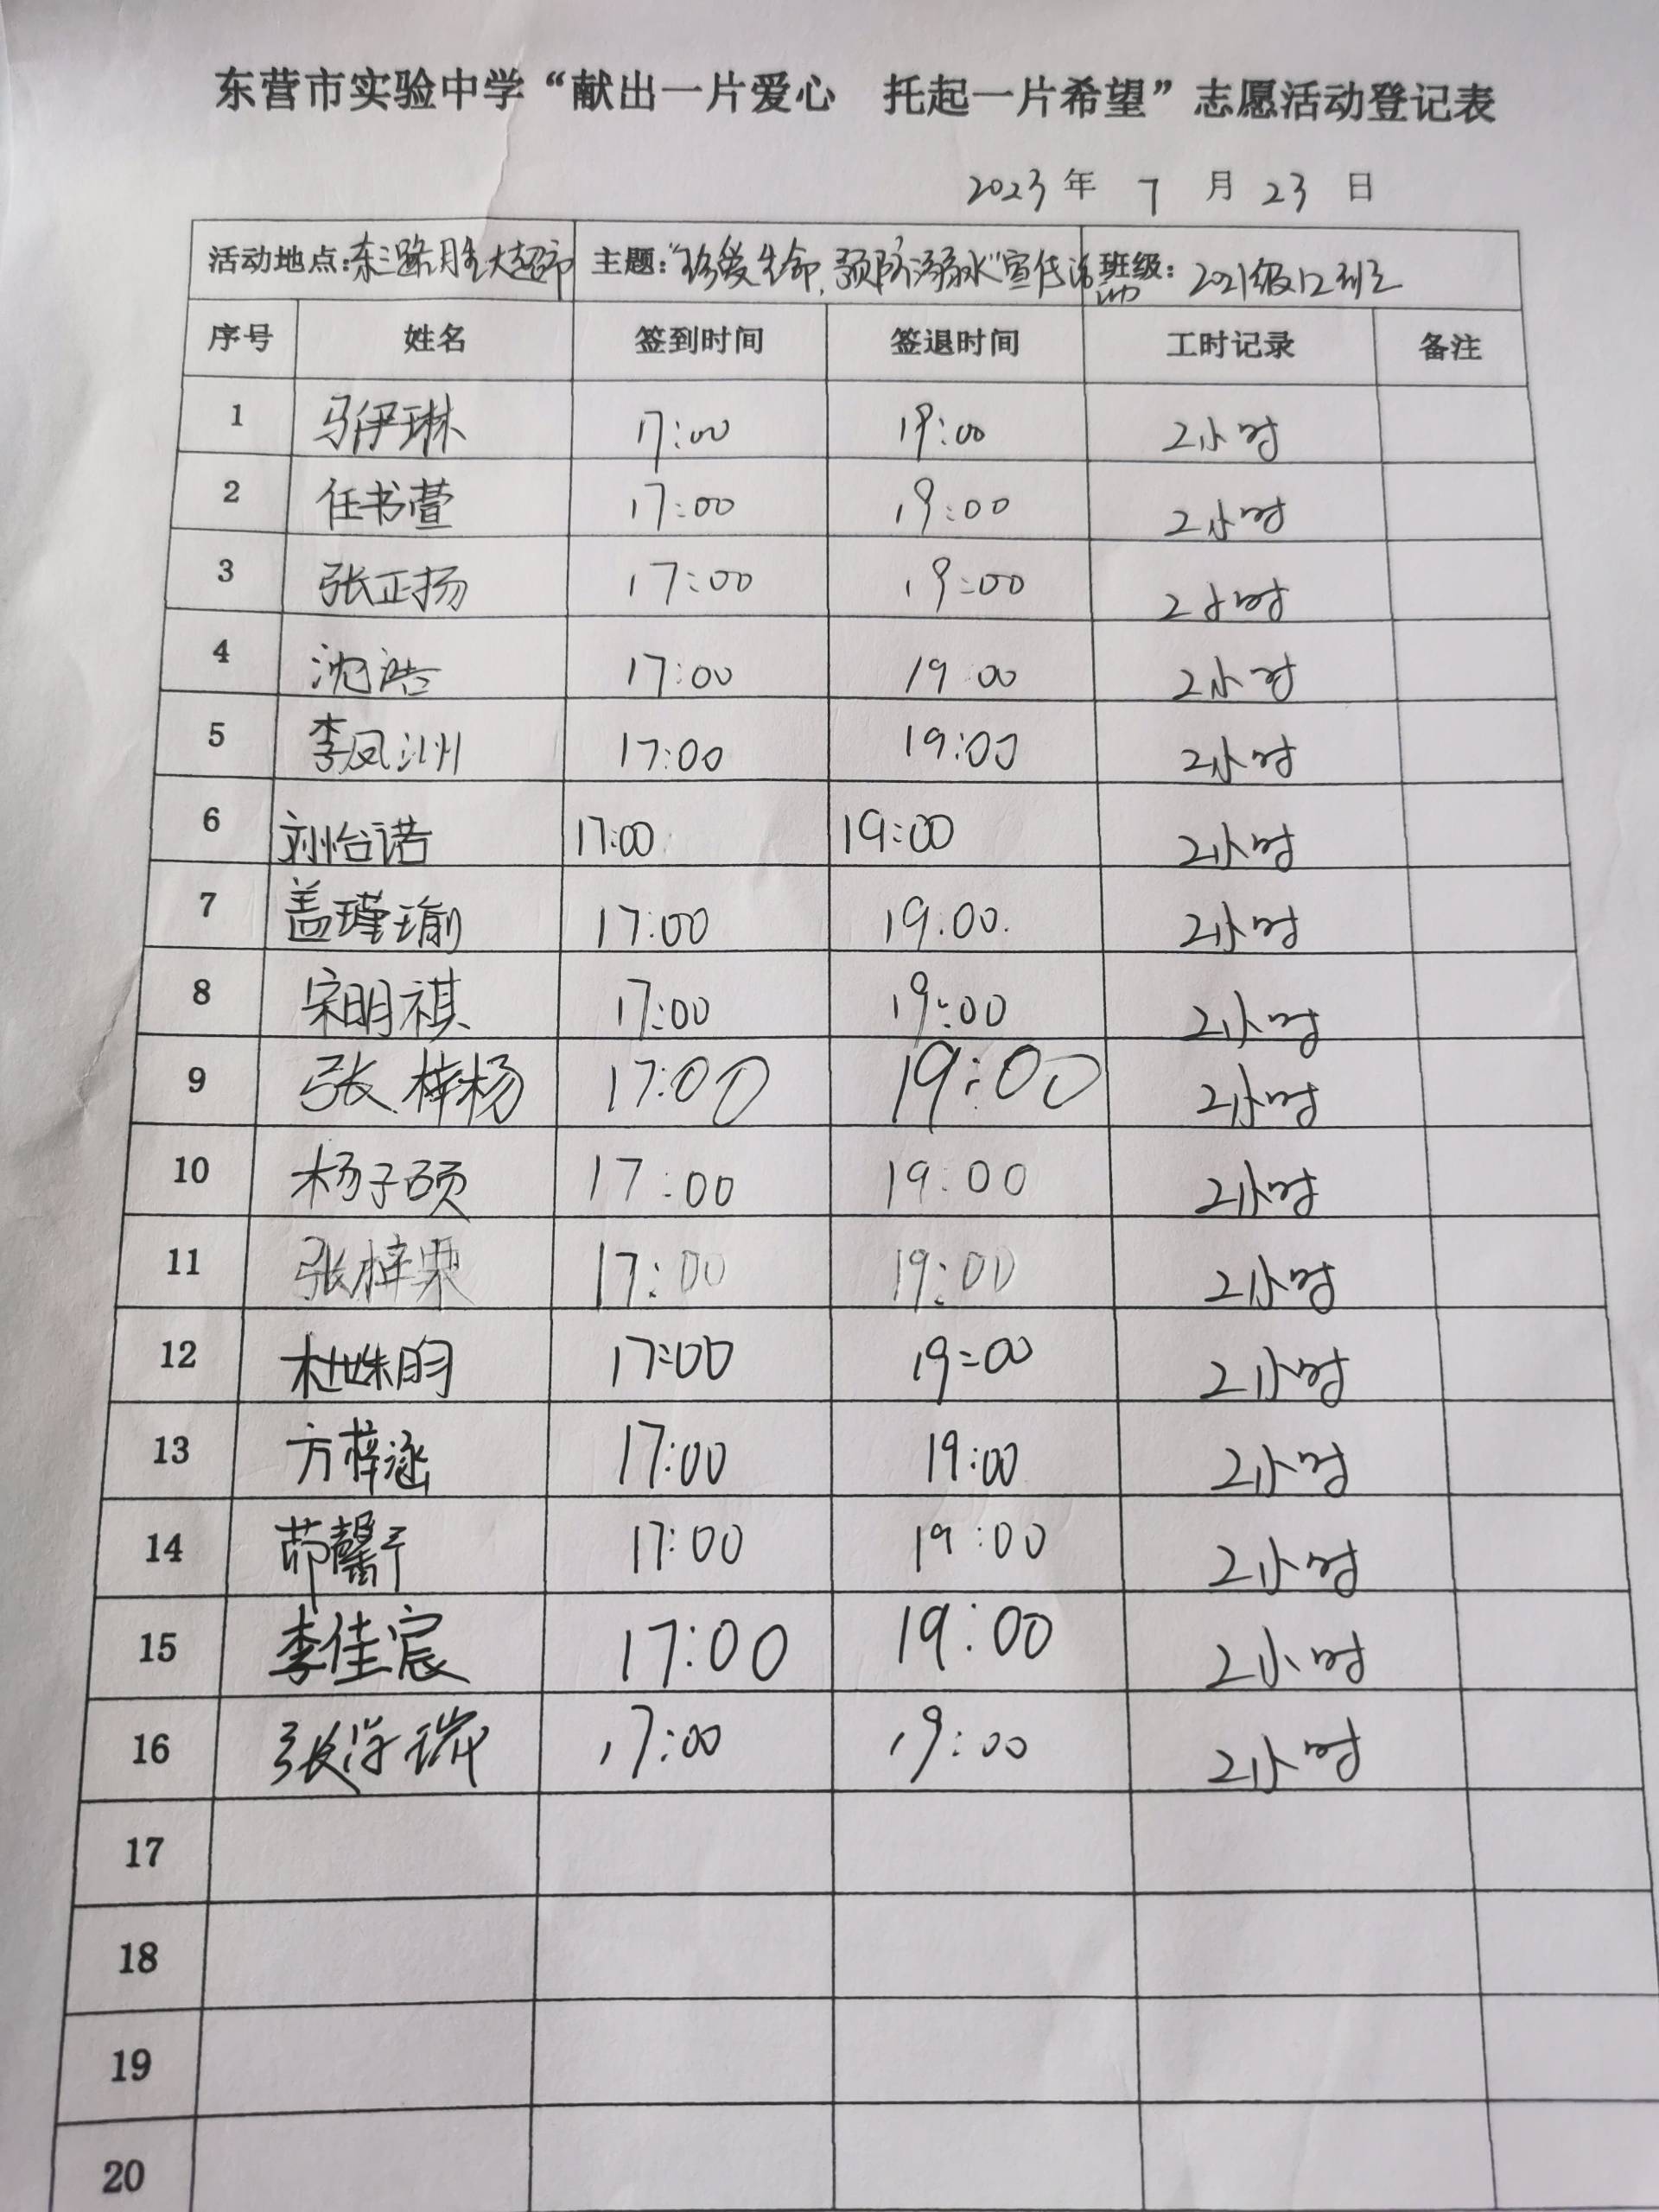 东营市实验中学“献出一片爱心 托起一片希望”志愿活动登记表
2023年 7 月 23 日
活动地点：东三路胜大超市 主题：“珍爱生命，预防溺水”宣传活动 班级：2021级12班
序号 姓名 签到时间 签退时间 工时记录 备注
1 马伊琳 17:00 19:00 2小时
2 任书萱 17:00 19:00 2小时
3 张正扬 17:00 19:00 2小时
4 沈浩 17:00 19:00 2小时
5 李凤洲 17:00 19:00 2小时
6 刘怡诺 17:00 19:00 2小时
7 盖瑾瑜 17:00 19.00. 2小时
8 宋明祺 17:00 19:00 2小时
9 张梓杨 17:00 19:00 2小时
10 杨子硕 17:00 19:00 2小时
11 张梓栗 17:00 19:00 2小时
12 杜姝昀 17:00 19:00 2小时
13 方梓涵 17:00 19:00 2小时
14 茆馨予 17:00 19:00 2小时
15 李佳宸 17:00 19:00 2小时
16 张学瑞 17:00 19:00 2小时
17
18
19
20